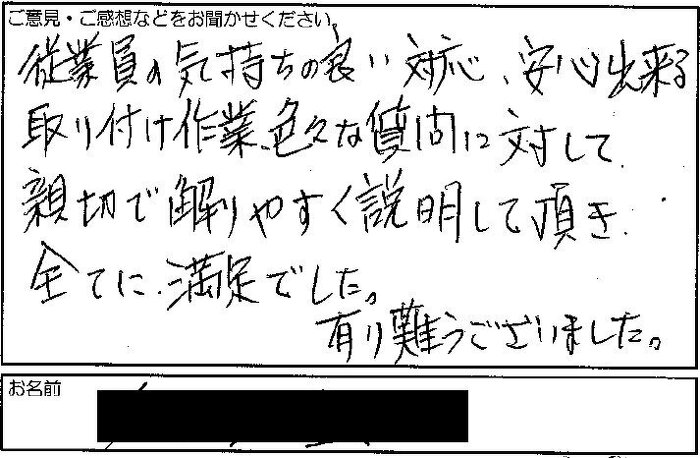 ご意見・ご感想などをお聞かせください。
従業員の気持ちの良い対応、安心出来る
取り付け作業、色々な質問に対して
親切で解りやすく説明して頂き
全てに満足でした。
有り難うございました。
お名前